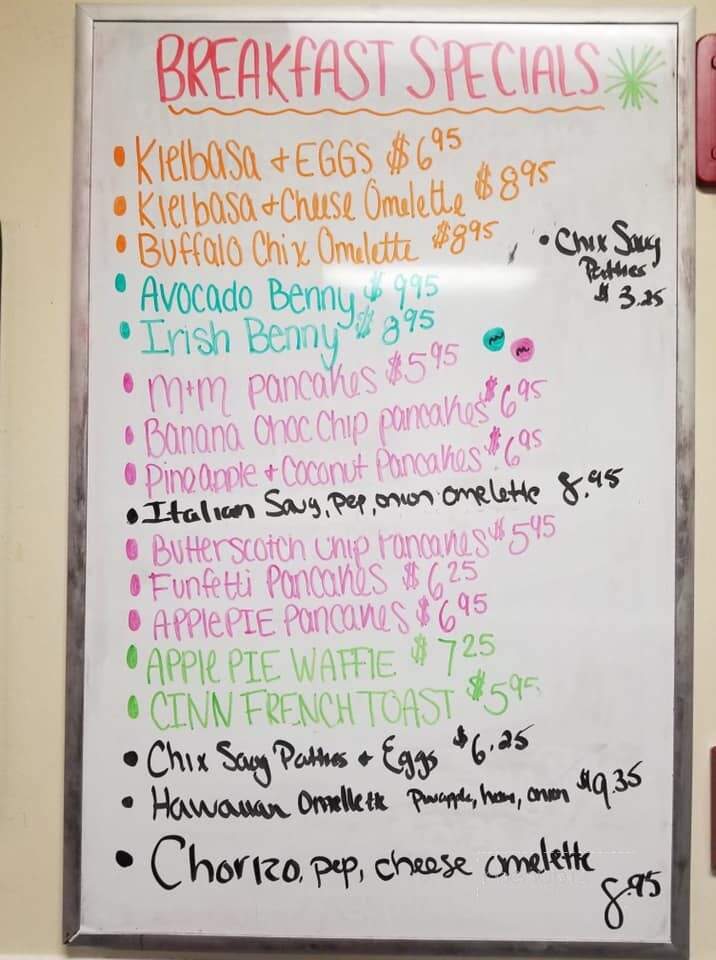 BREAKFAST SPECIALS
• Kielbasa + EGGS $6.95
• Kielbasa + Cheese Omelette $8.95
• Buffalo Chix Omelette $8.95
• Chix Saug
Patties
$3.25
• Avocado Benny $9.95
• Irish Benny $8.95
• m+m pancakes $5.95
m m
• Banana Choc Chip pancakes $6.95
• Pineapple + Coconut Pancakes $6.95
• Italian Saug, pep, onion omelette 8.95
• Butterscotch Chip Pancakes $5.95
• Funfetti Pancakes $6.25
• APPlePIE Pancakes $6.95
• APPle PIE WAFFlE $7.25
• CINN FRENCH TOAST $5.95
• Chix Saug Patties + Eggs $6.25
• Hawaiian Omellette Pineapple, ham, onion $9.35
• Chorizo, pep, cheese omelette
8.95